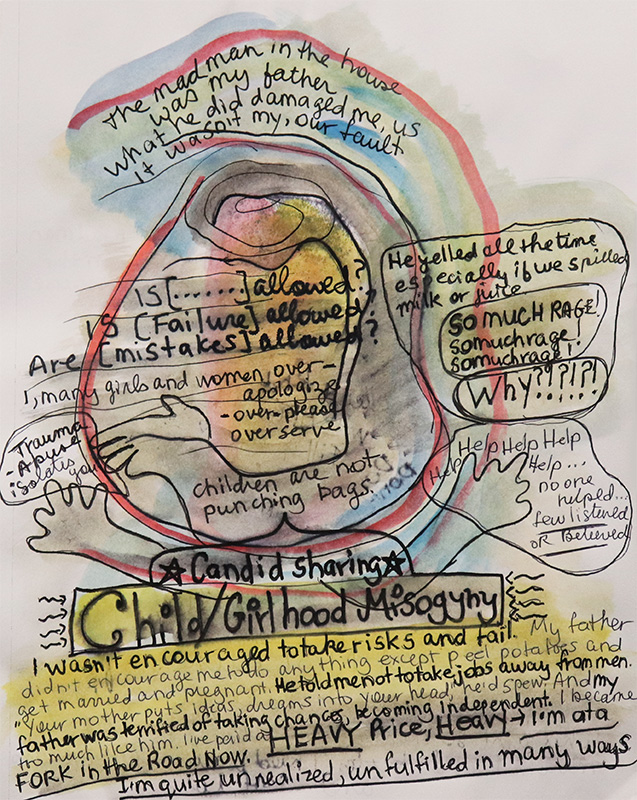 The mad man in the house
was my father
what he did damaged me, us
It wasn't my, our fault
IS [.......] allowed?
IS [Failure] allowed?
Are [mistakes] allowed?
I, many girls and women, over-
apologize
-over-please
overserve
He yelled all the time
especially if we spilled
milk or juice
SO MUCH RAGE!
So much rage!
So much rage!
Why?!?!?!
Trauma
- Abuse
isolates
you
children are not
punching bags!
Help Help Help
Help
Help...
no one
helped...
few listened
OR Believed
☆ Candid sharing ☆
Child/Girlhood Misogyny
I wasn't encouraged to take risks and fail. My father
didn't encourage me to do anything except peel potatoes and
get married and pregnant. He told me not to take jobs away from men.
"Your mother puts ideas, dreams into your head," he'd spew. And my
father was terrified of taking chances, becoming independent. I became
too much like him. I've paid a HEAVY Price, HEAVY → I'm at a
FORK in the Road Now.
I'm quite unrealized, unfulfilled in many ways